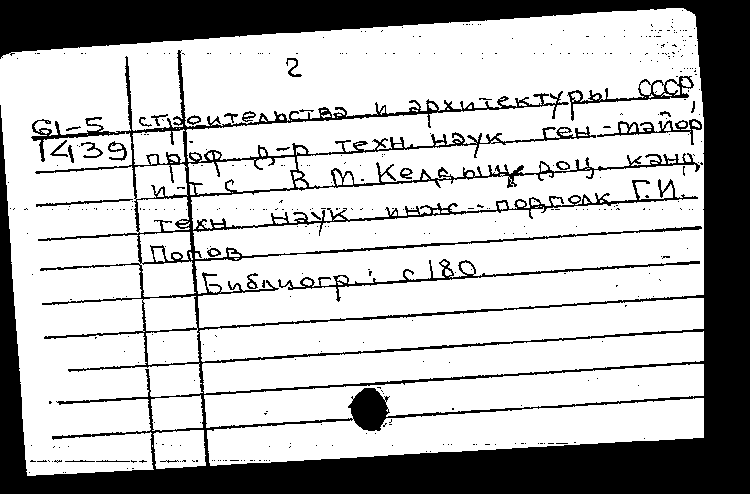 2
61-5 строительства и архитектуры СССР,
1439 проф д-р техн. наук ген.-майор
и-т с. В. М. Келдыш, доц. канд.
техн. наук инж.-подполк Г. И.
Попов
Библиогр.: с 180.